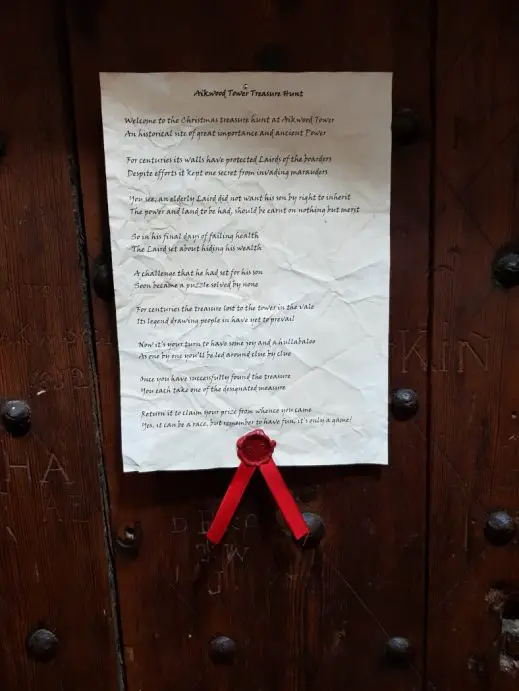 Aikwood Tower Treasure Hunt
Welcome to the Christmas treasure hunt at Aikwood Tower
An historical site of great importance and ancient Power
For centuries its walls have protected Lairds of the boarders
Despite efforts it kept one secret from invading marauders
You see, an elderly Laird did not want his son by right to inherit
The power and land to be had, should be earnt on nothing but merit
So in his final days of failing health
The Laird set about hiding his wealth
A challenge that he had set for his son
Soon became a puzzle solved by none
For centuries the treasure lost to the tower in the vale
Its legend drawing people in have yet to prevail
Now it's your turn to have some joy and a hullabaloo
As one by one you'll be led around clue by clue
Once you have successfully found the treasure
You each take one of the designated measure
Return it to claim your prize from whence you came
Yes, it can be a race, but remember to have fun, it's only a game!
KIN
HA